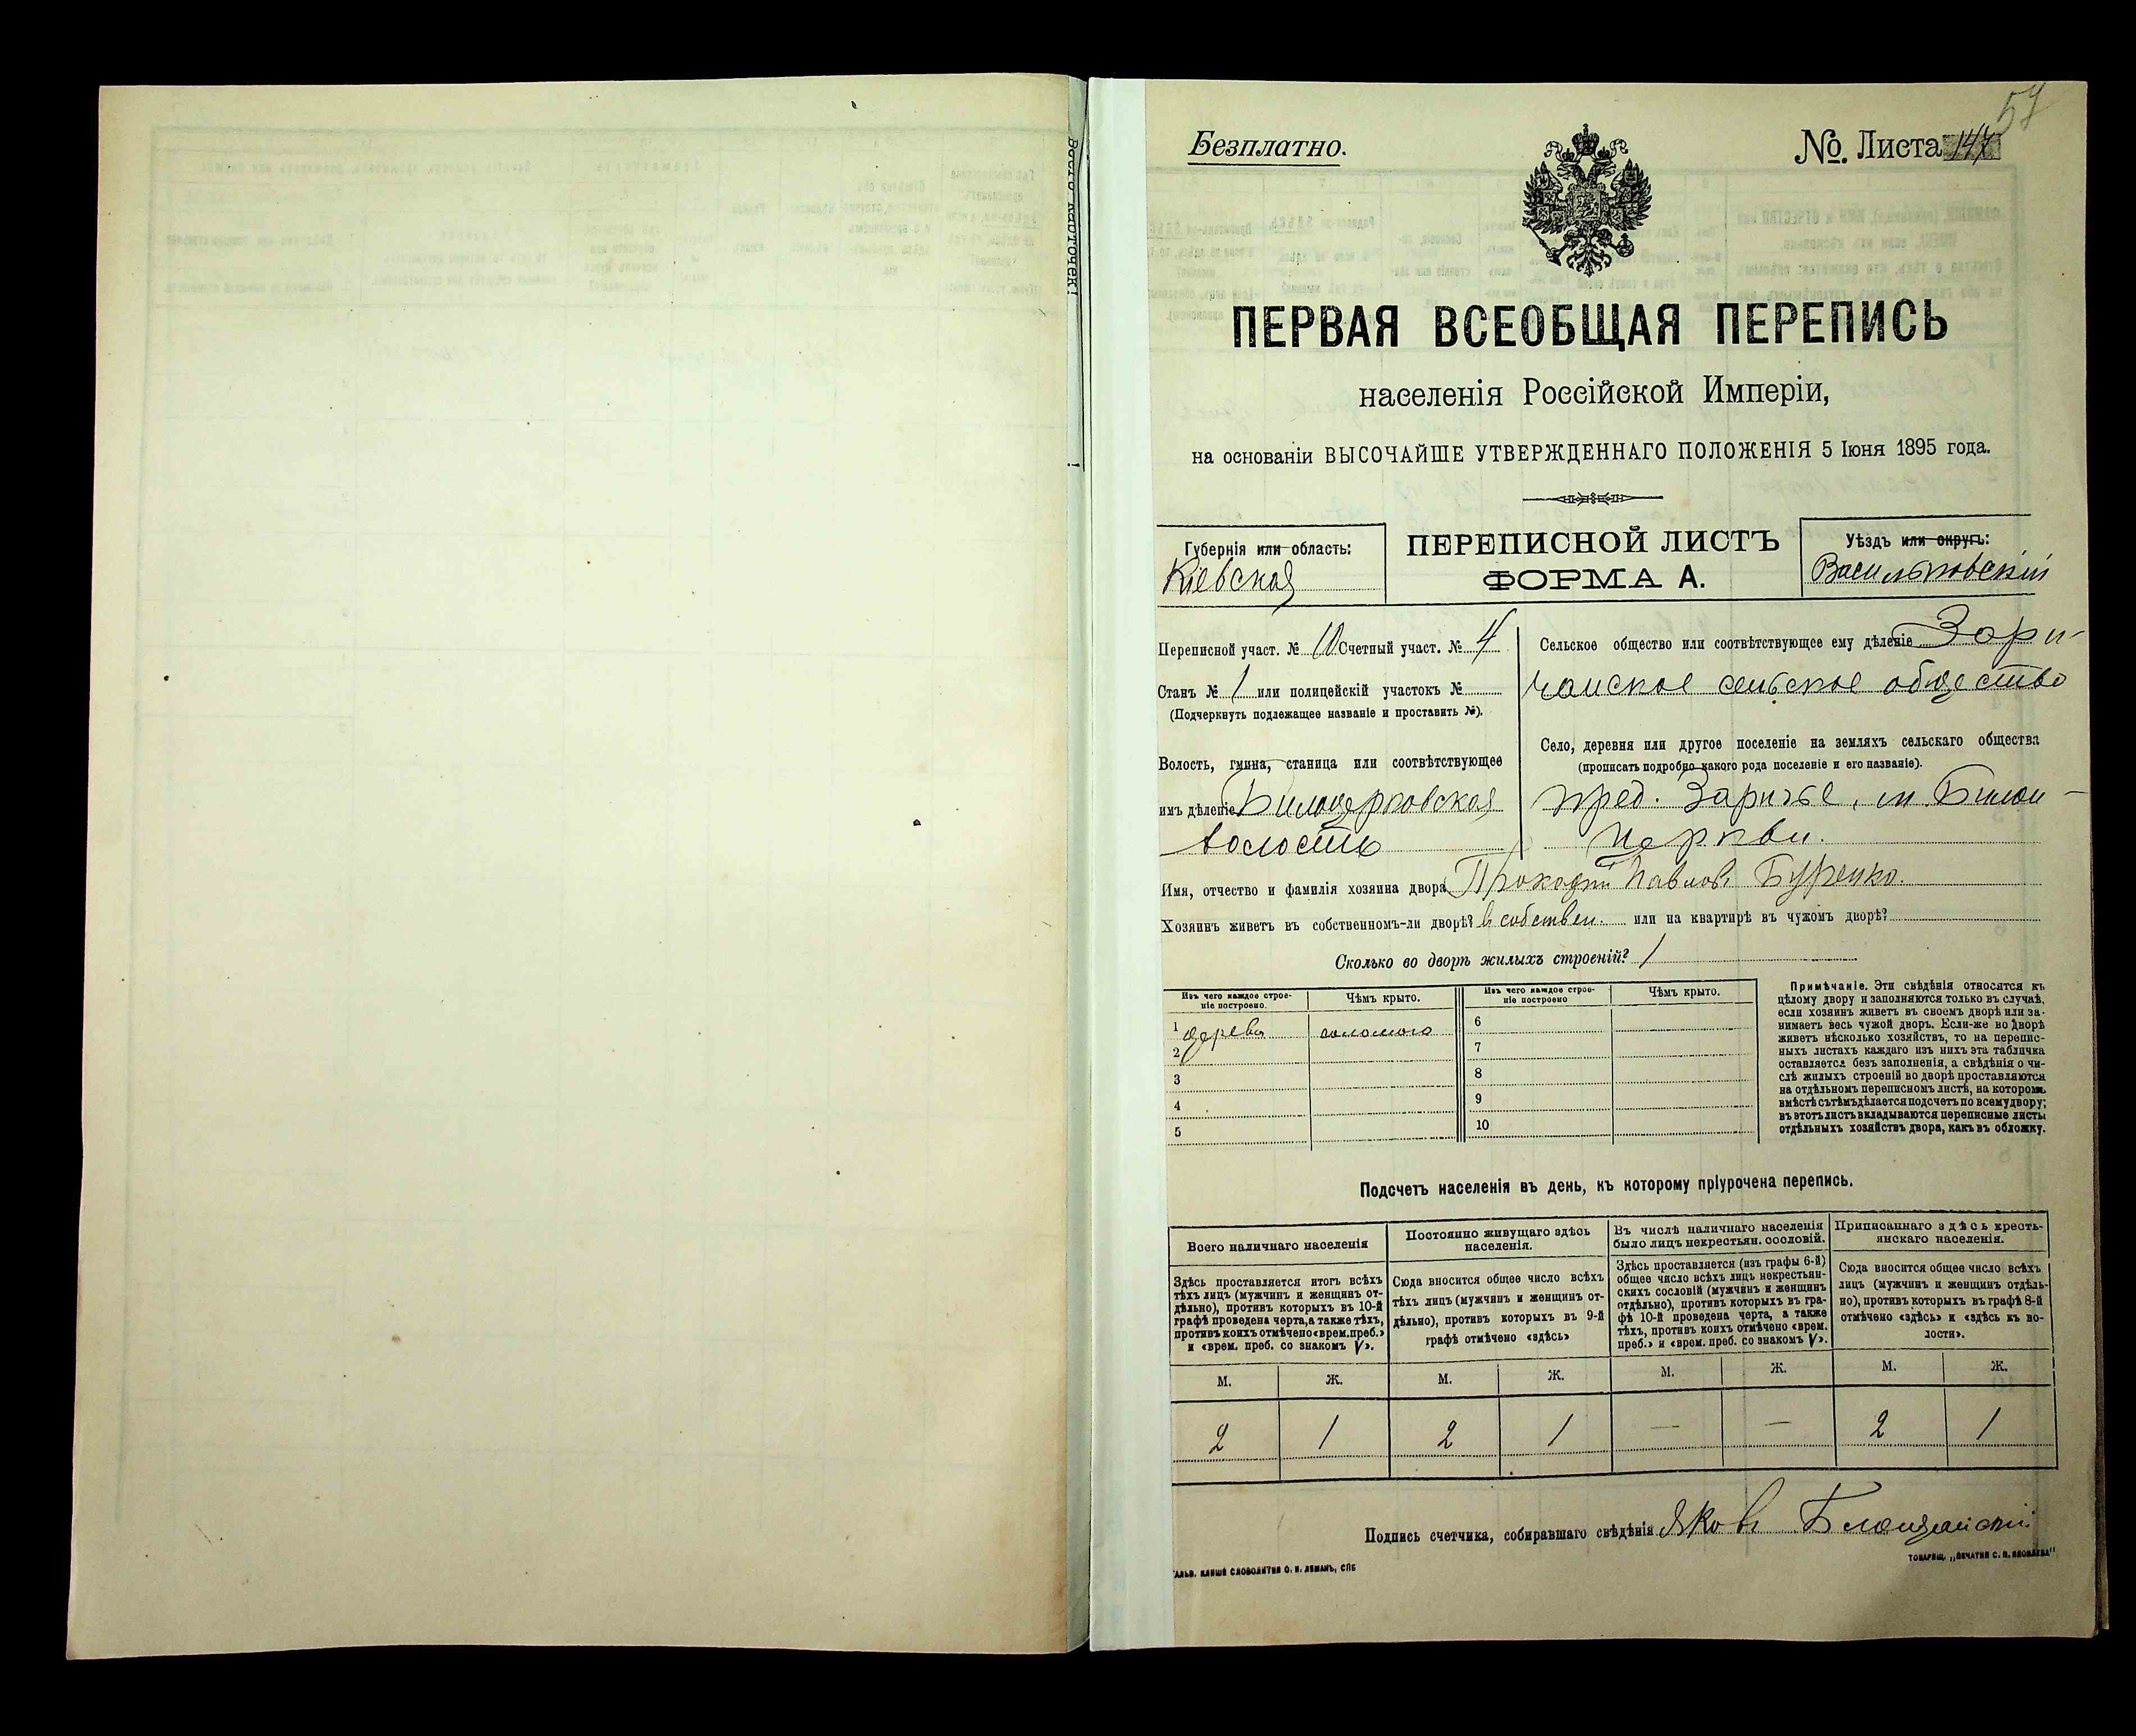 57
Безплатно.
№. Листа 147
ПЕРВАЯ ВСЕОБЩАЯ ПЕРЕПИСЬ
населенія Россійской Имперіи,
на основаніи ВЫСОЧАЙШЕ УТВЕРЖДЕННАГО ПОЛОЖЕНІЯ 5 Іюня 1895 года.
Губернія или область:
Кіевская
ПЕРЕПИСНОЙ ЛИСТЪ
ФОРМА А.
Уѣздъ или округъ:
Васильковскій
Переписной участ. № 10 Счетный участ. № 4
Станъ № 1 или полицейскій участокъ №
(Подчеркнуть подлежащее названіе и проставить №).
Волость, гмина, станица или соотвѣтствующее
имъ дѣленіе Билоцерковская
волость
Сельское общество или соотвѣтствующее ему дѣленіе Зари-
чанское сельское общество
Село, деревня или другое поселеніе на земляхъ сельскаго общества
(прописать подробно какого рода поселеніе и его названіе).
пред. Заричье, м. Билои-
Церкви.
Имя, отчество и фамилія хозяина двора Прокофій Павловъ Буренко.
Хозяинъ живетъ въ собственномъ-ли дворѣ? в собствен. или на квартирѣ въ чужомъ дворѣ?
Сколько во дворѣ жилыхъ строеній? 1
Изъ чего каждое строе-
ніе построено.
Чѣмъ крыто.
Изъ чего каждое строе-
ніе построено
Чѣмъ крыто.
1 дерева соломою
2
3
4
5
6
7
8
9
10
Примѣчаніе. Эти свѣдѣнія относятся къ
цѣлому двору и заполняются только въ случаѣ,
если хозяинъ живетъ въ своемъ дворѣ или за-
нимаетъ весь чужой дворъ. Если-же во дворѣ
живетъ нѣсколько хозяйствъ, то на перепис-
ныхъ листахъ каждаго изъ нихъ эта табличка
оставляется безъ заполненія, а свѣдѣнія о чи-
слѣ жилыхъ строеній во дворѣ проставляются
на отдѣльномъ переписномъ листѣ, на которомъ
вмѣстѣ съ тѣмъ дѣлается подсчетъ по всему двору;
въ этотъ листъ вкладываются переписные листы
отдѣльныхъ хозяйствъ двора, какъ въ обложку.
Подсчетъ населенія въ день, къ которому пріурочена перепись.
Всего наличнаго населенія
Постоянно живущаго здѣсь
населенія.
Въ числѣ наличнаго населенія
было лицъ некрестьян. сословій.
Приписаннаго здѣсь кресть-
янскаго населенія.
Здѣсь проставляется итогъ всѣхъ
тѣхъ лицъ (мужчинъ и женщинъ от-
дѣльно), противъ которыхъ въ 10-й
графѣ проведена черта, а также тѣхъ,
противъ коихъ отмѣчено «врем. преб.»
и «врем. преб. со знакомъ V».
Сюда вносится общее число всѣхъ
тѣхъ лицъ (мужчинъ и женщинъ от-
дѣльно), противъ которыхъ въ 9-й
графѣ отмѣчено «здѣсь»
Здѣсь проставляется (изъ графы 6-й)
общее число всѣхъ лицъ некрестьян-
скихъ сословій (мужчинъ и женщинъ
отдѣльно), противъ которыхъ въ гра-
фѣ 10-й проведена черта, а также
тѣхъ, противъ коихъ отмѣчено «врем.
преб.» и «врем. преб. со знакомъ V».
Сюда вносится общее число всѣхъ
лицъ (мужчинъ и женщинъ отдѣль-
но), противъ которыхъ въ графѣ 8-й
отмѣчено «здѣсь» и «здѣсь къ во-
лости».
М. Ж. М. Ж. М. Ж. М. Ж.
2 1 2 1 — — 2 1
Подпись счетчика, собиравшаго свѣдѣнія Яковъ
ГАЛЬВ. КЛИШЕ СЛОВОЛИТНИ О. И. ЛЕМАНЪ, СПБ
ТОВАРИЩ. „ПЕЧАТНЯ С. П. ЯКОВЛЕВА"